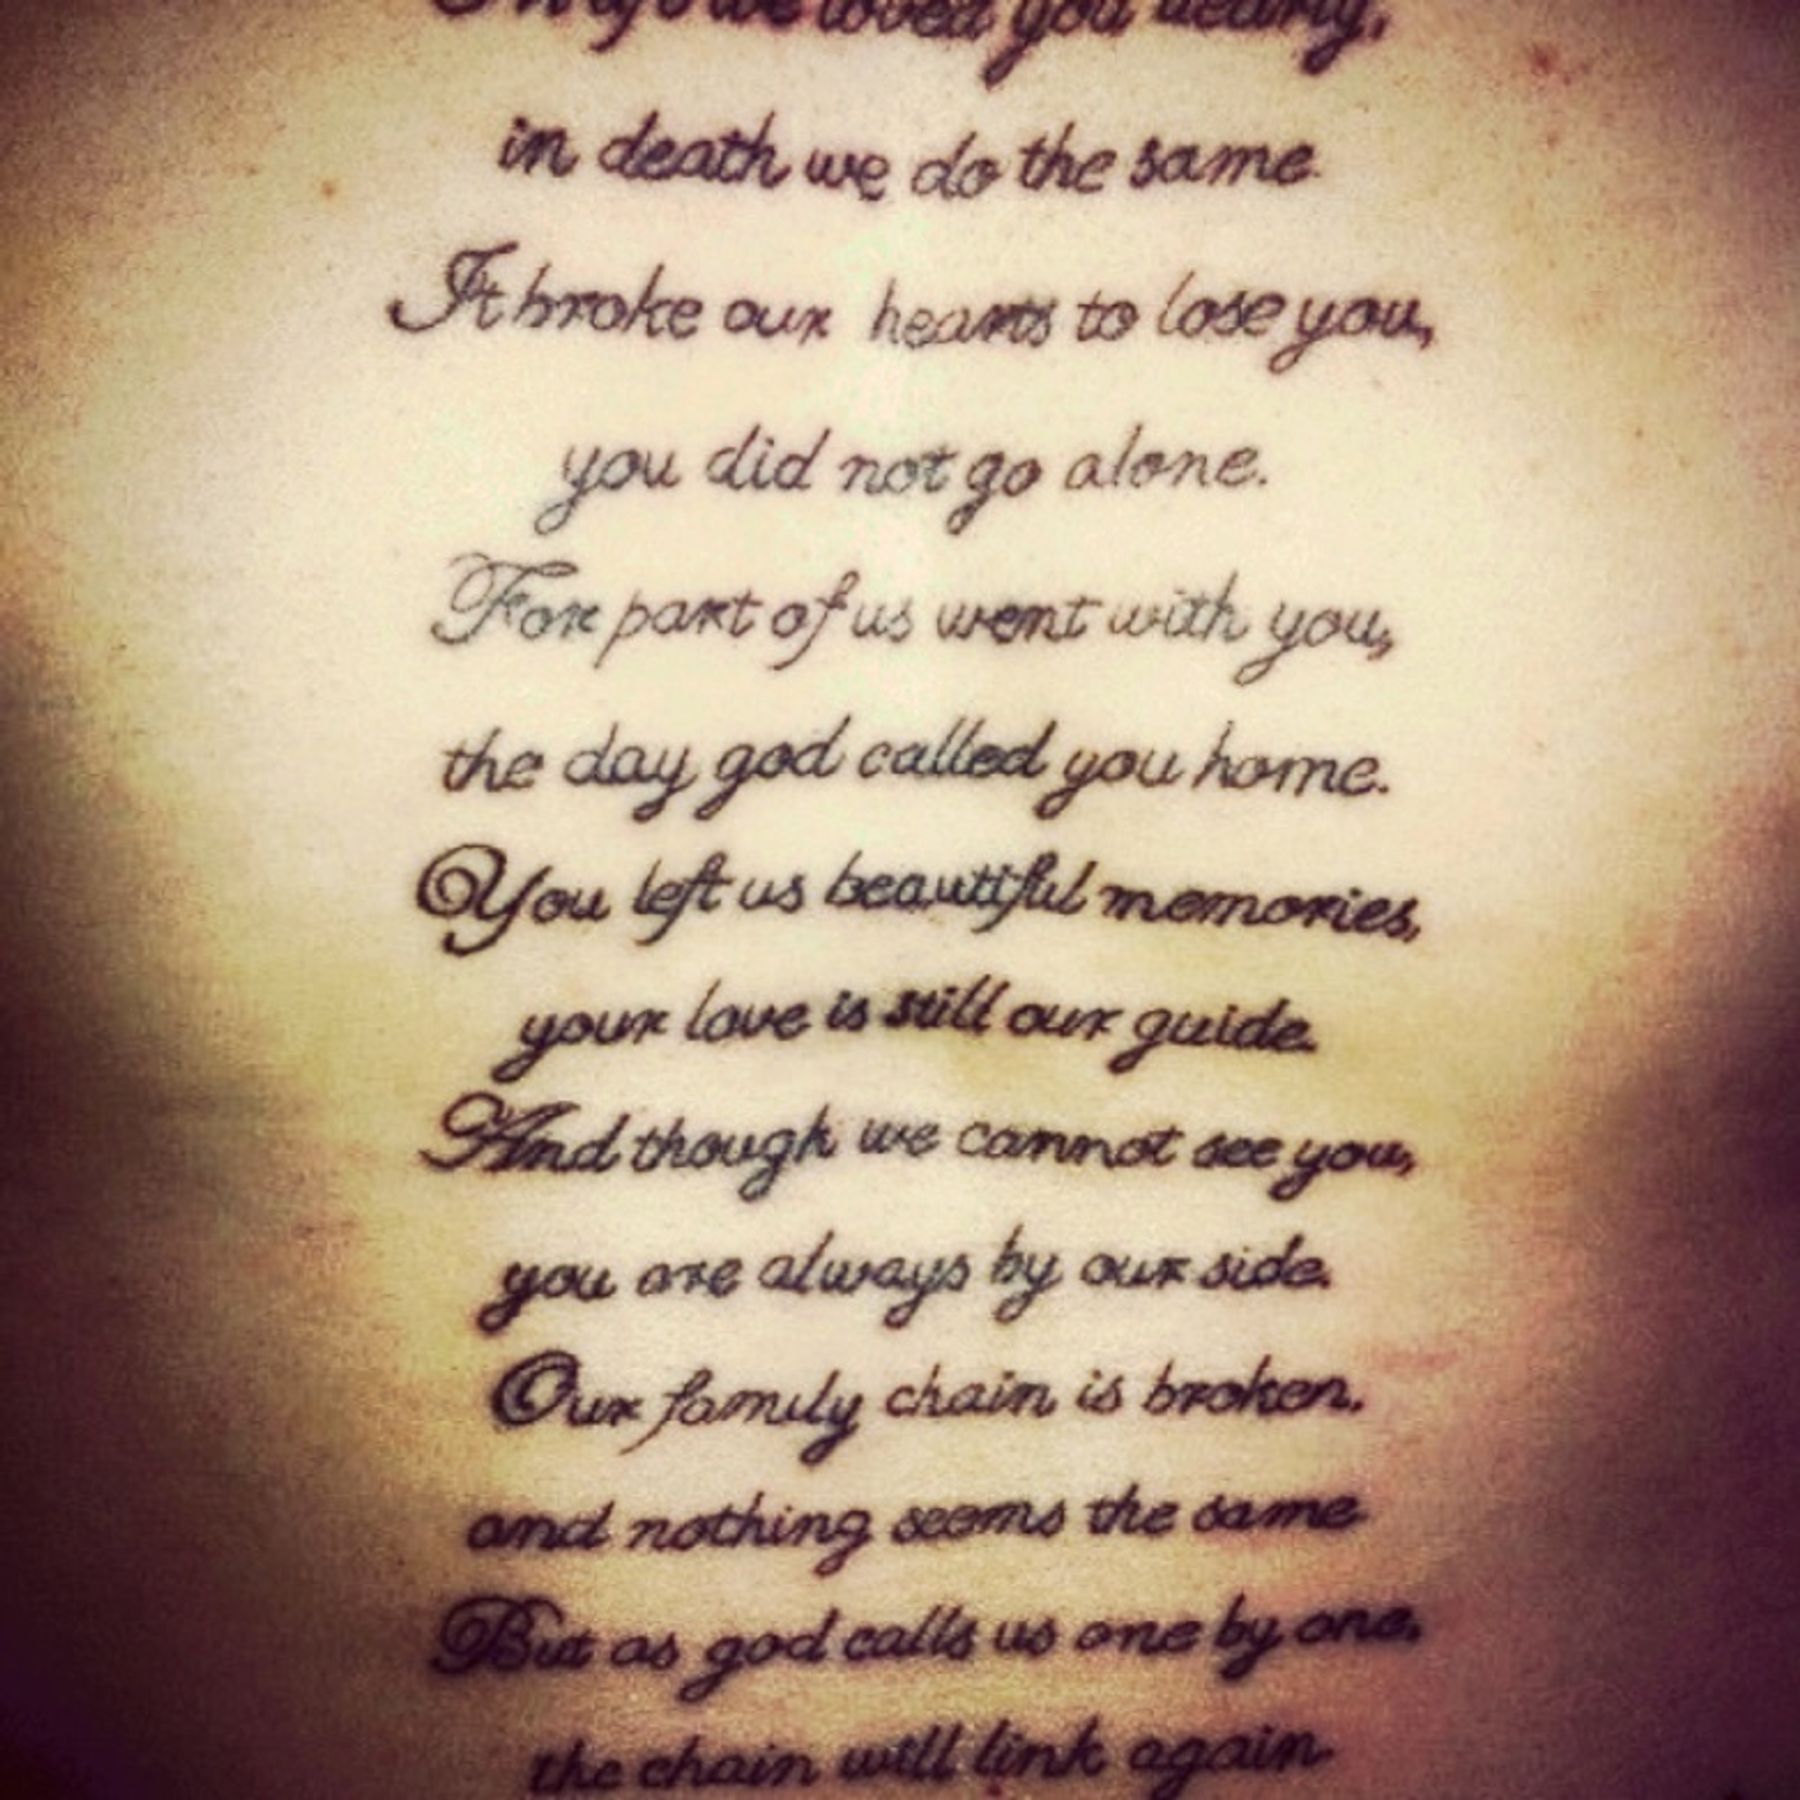 In life we loved you dearly,
in death we do the same.
It broke our hearts to lose you,
you did not go alone.
For part of us went with you,
the day god called you home.
You left us beautiful memories,
your love is still our guide.
And though we cannot see you,
you are always by our side.
Our family chain is broken.
and nothing seems the same
But as god calls us one by one,
the chain will link again